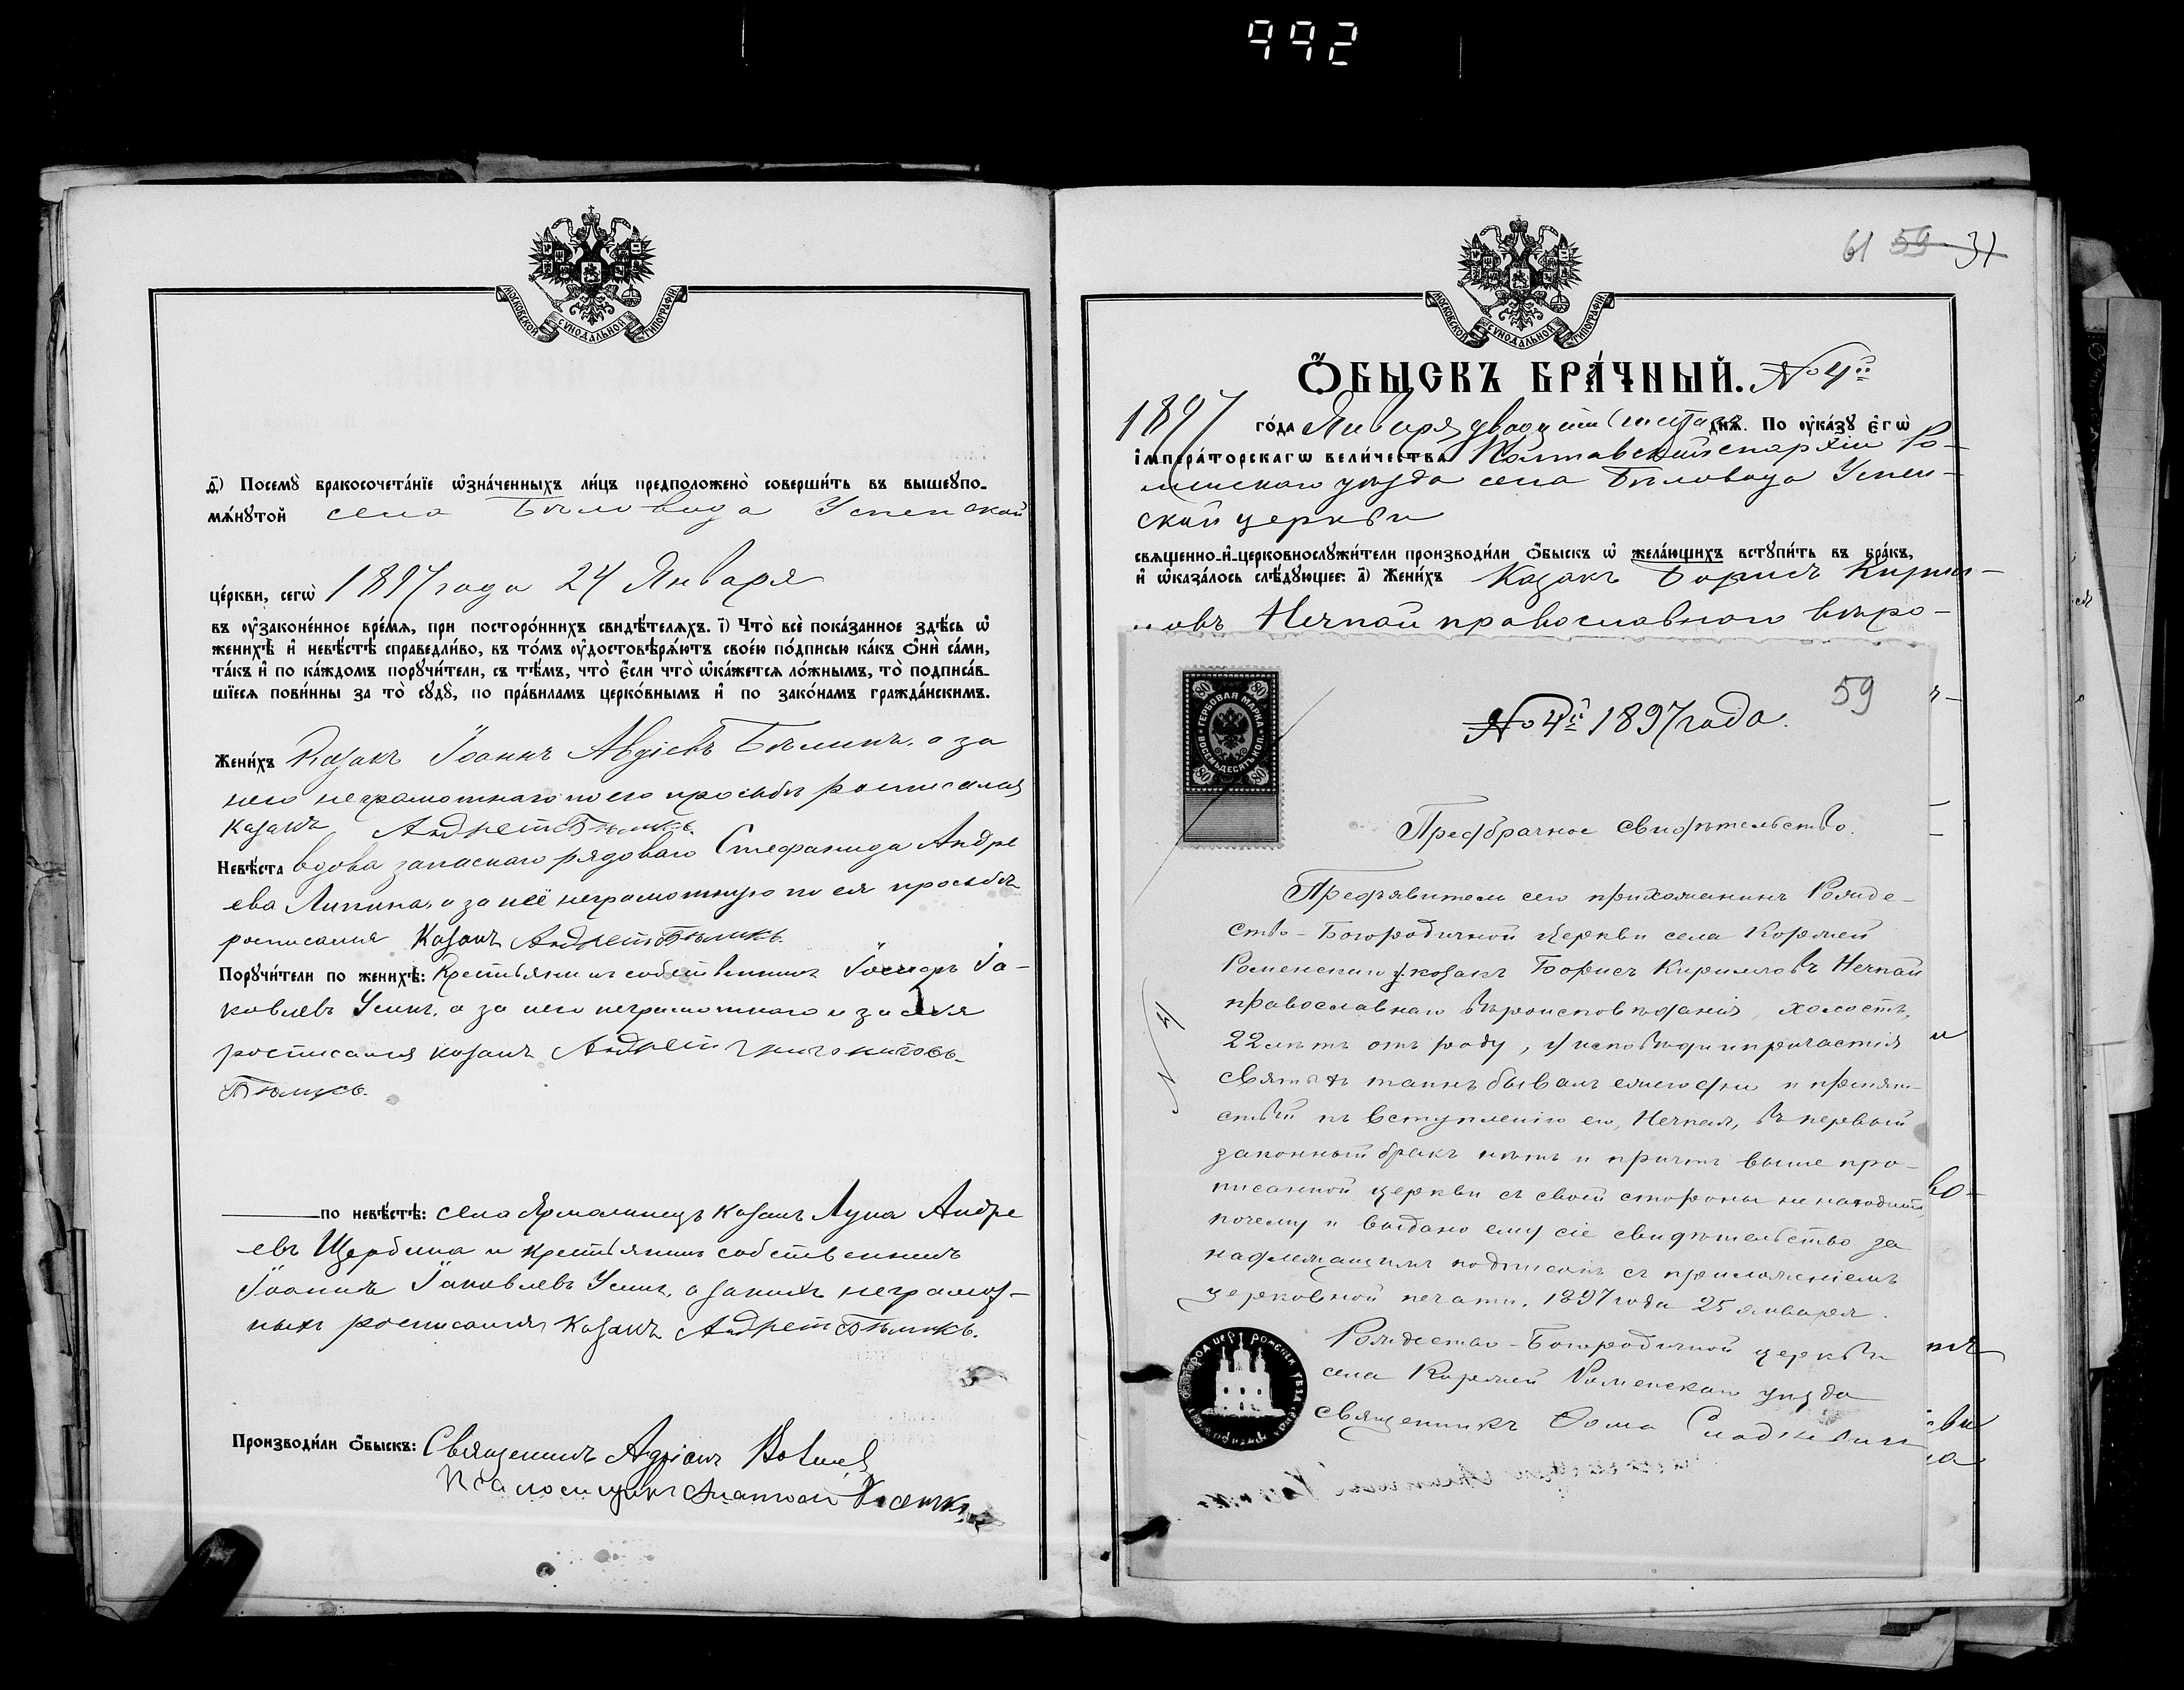 992
МОСКОВСКОЙ СѴНОДАЛЬНОЙ ТИПОГРАФІИ
д҃) Посемꙋ̀ бракосочета́нїе ѡ҆зна́ченныхъ ли́цъ предположено̀ соверши́ть въ вышеꙋпо-
мѧ́нꙋтой села Бѣловода Успенской
це́ркви, сегѡ̀ 1897 года 24 Января
въ ᲂу҆законе́нное вре́мѧ, при посторо́ннихъ свидѣ́телѧхъ. і҃) Что̀ всѐ пока́занное здѣ́сь ѡ҆
женихѣ̀ и҆ невѣ́стѣ справедли́во, въ то́мъ ᲂу҆достовѣрѧ́ютъ свое́ю по́дписью ка́къ ѻ҆нѝ са́ми,
та́къ и҆ по ка́ждомъ порꙋчи́тели, съ тѣ́мъ, что̀ є҆́сли что̀ ѡ҆ка́жетсѧ ло́жнымъ, то̀ подписа́в-
шїесѧ пови́нны за то̀ сꙋдꙋ̀, по пра́виламъ церко́внымъ и҆ по зако́намъ гражда́нскимъ.
Жени́хъ Казакъ Іоаннъ Авдіевъ Бѣликъ, а за
него неграмотнаго по его просьбѣ росписался
казакъ Андрей Бѣликъ.
Невѣ́ста вдова запаснаго рядоваго Стефанида Андре
ева Липина, а за неё неграмотную по ея просьбѣ
росписался Казакъ Андрей Бѣликъ
Порꙋчи́тели по женихѣ̀: Крестьянинъ собственникъ Іа-
ковлевъ Усикъ, а за него неграмотнаго и за себя
росписался казакъ Андрей
Бѣликъ.
по невѣ́стѣ: села Ярмолинецъ казакъ Лука Андре
евъ Щербина и крестьянинъ собственникъ
Іоаннъ Іаковлевъ Усикъ, а за нихъ неграмот-
ныхъ росписался Казакъ Андрей Бѣликъ.
Производи́ли ѻ҆́быскъ: Священникъ Адріанъ
Псаломщикъ
МОСКОВСКОЙ СѴНОДАЛЬНОЙ ТИПОГРАФІИ
61 59 31
Ѻ҆БЫСКЪ БРА́ЧНЫЙ. № 4й
1897 го́да Января двадцать шестаго днѧ̀. По ᲂу҆ка́зꙋ є҆гѡ̀
і҆мпера́торскагѡ вели́чества Полтавской епархіи Ро-
менскаго уѣзда села Бѣловода Успен-
ской церкви
свѧщенно-и҆-церковнослꙋжи́тели производи́ли ѻ҆́быскъ ѡ҆ жела́ющихъ встꙋпи́ть въ бра́къ,
и҆ ѡ҆каза́лось слѣ́дꙋющее: а҃) Жени́хъ Казакъ Борисъ Кирил-
овъ Нечпай православнаго вѣро-
59
ГЕРБОВАЯ МАРКА ВОСЕМЬДЕСЯТЪ КОП. 80 80 80 80
№ 4й 1897 года.
Предбрачное свидѣтельство.
Предъявитель сего прихожанинъ Рожде-
ство-Богородичной церкви села Коржей
Роменскаго у. козакъ Борисъ Кирилловъ Нечпай
православнаго вѣроисповѣданія, холостъ,
22 лѣтъ отъ роду, у исповѣди и причастія
Святыхъ таинъ бывалъ ежегодно и препят-
ствій къ вступленію его, Нечпая, въ первый
законный бракъ нѣтъ и причтъ выше про-
писанной церкви съ своей стороны не находитъ,
почему и выдано ему сіе свидѣтельство за
надлежащимъ подписомъ съ приложеніемъ
церковной печати. 1897 года 25 января.
Рождество-Богородичной церкви
села Коржей Роменскаго уѣзда
священникъ Ѳома